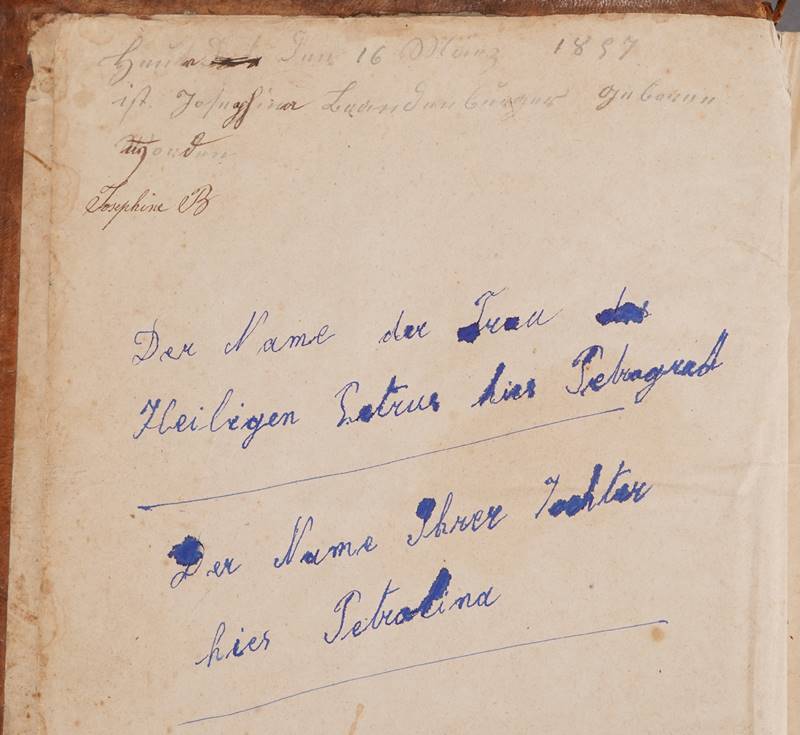 Heute den 16 März 1857
ist Josephina Brandenburger geboren
worden
Josephine B
Der Name der Frau des
Heiligen Petrus hies Petrograd
Der Name Ihrer Tochter
hies Petralina